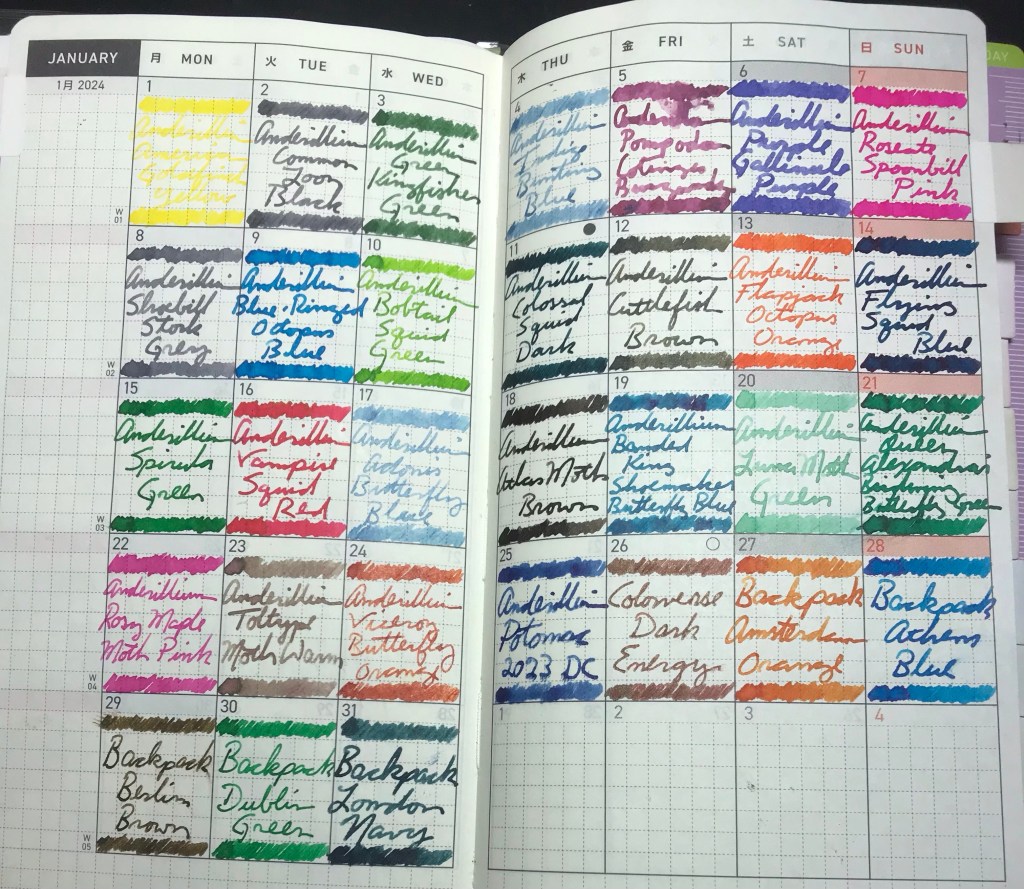 JANUARY
1月 2024
月 MON
火 TUE
水 WED
木 THU
金 FRI
土 SAT
日 SUN
DAY
W
01
1
Anderillium
American
Goldfinch
Yellow
2
Anderillium
Common
Loon
Black
3
Anderillium
Green
Kingfisher
Green
4
Anderillium
Indigo
Bunting
Blue
5
Anderillium
Pompadour
Cotinga
Burgundy
6
Anderillium
Purple
Gallinule
Purple
7
Anderillium
Roseate
Spoonbill
Pink
W
02
8
Anderillium
Shoebill
Stork
Grey
9
Anderillium
Blue-Ringed
Octopus
Blue
10
Anderillium
Bobtail
Squid
Green
11
Anderillium
Colossal
Squid
Dark
12
Anderillium
Cuttlefish
Brown
13
Anderillium
Flapjack
Octopus
Orange
14
Anderillium
Flying
Squid
Blue
W
03
15
Anderillium
Spirula
Green
16
Anderillium
Vampire
Squid
Red
17
Anderillium
Adonis
Butterfly
Blue
18
Anderillium
Atlas Moth
Brown
19
Anderillium
Banded
King
Shoemaker
Butterfly Blue
20
Anderillium
Luna Moth
Green
21
Anderillium
Queen
Alexandra's
Birdwing
Butterfly Green
W
04
22
Anderillium
Rosy Maple
Moth Pink
23
Anderillium
Toltype
Moth Warm
24
Anderillium
Viceroy
Butterfly
Orange
25
Anderillium
Potomac
2023 DC
26
Colorverse
Dark
Energy
27
Backpack
Amsterdam
Orange
28
Backpack
Athens
Blue
W
05
29
Backpack
Berlin
Brown
30
Backpack
Dublin
Green
31
Backpack
London
Navy
1
2
3
4